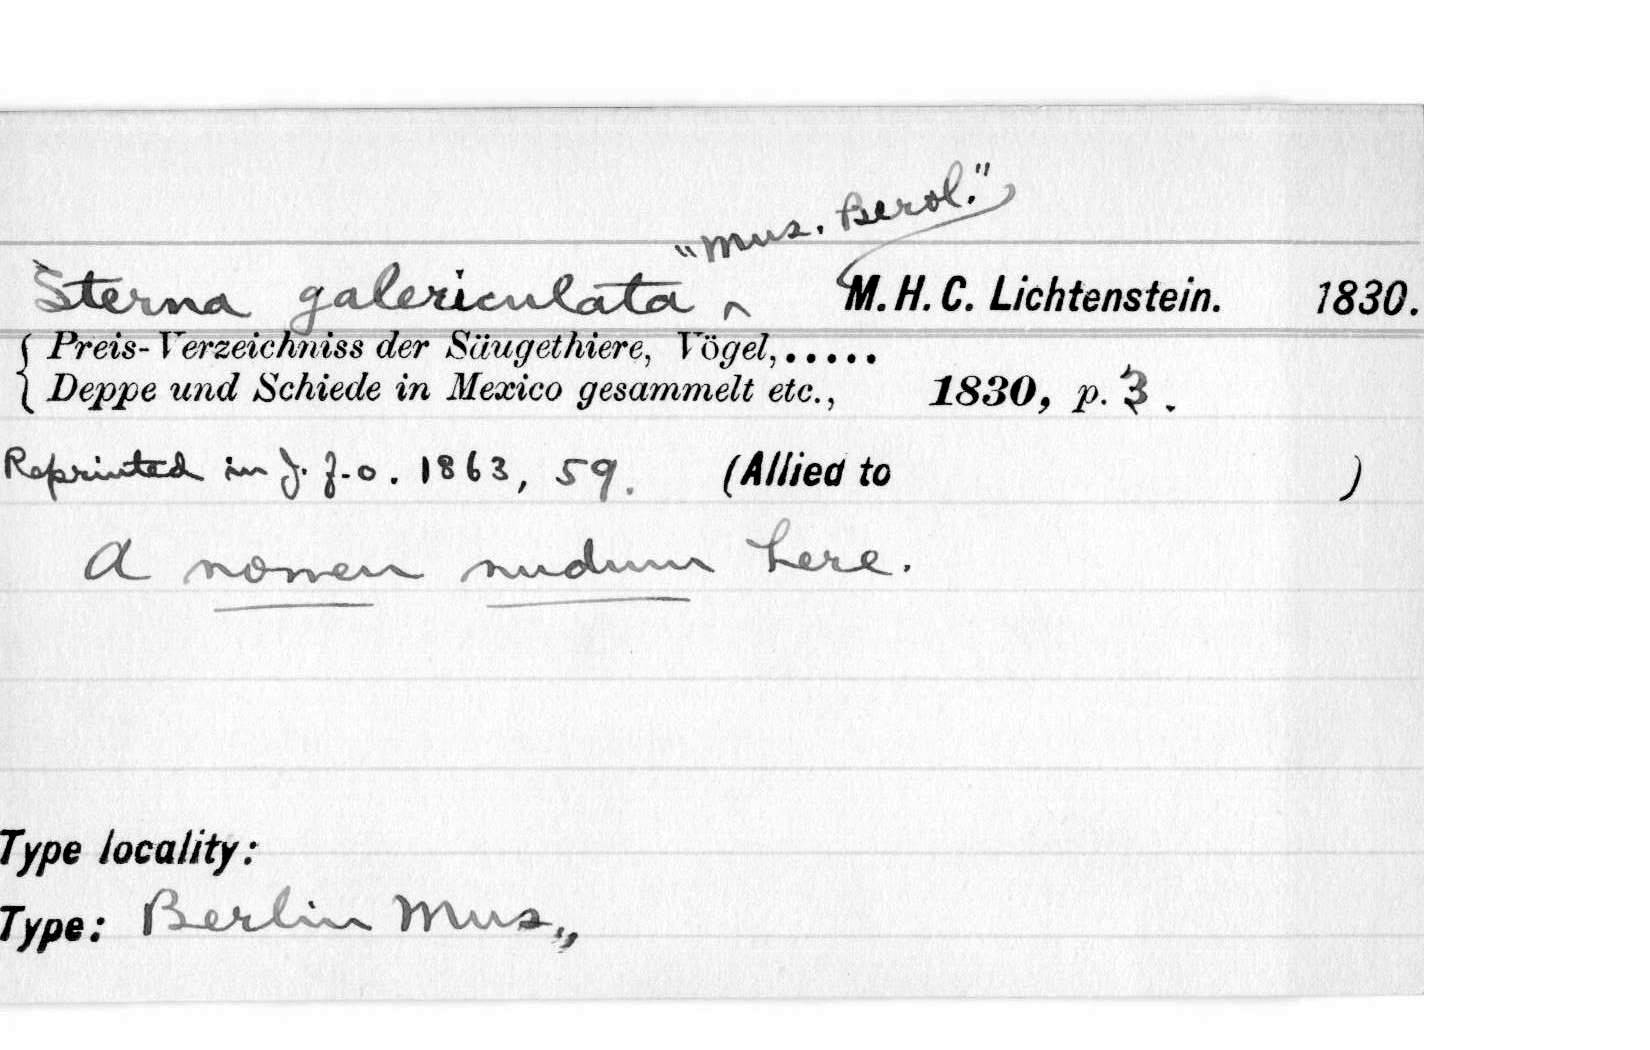 "Mus. Berol."
Sterna galericulata ^ M. H. C. Lichtenstein. 1830.
{ Preis-Verzeichniss der Säugethiere, Vögel,.....
{ Deppe und Schiede in Mexico gesammelt etc., 1830, p. 3.
Reprinted in J. f. O. 1863, 59. (Allied to )
A nomen nudum here.
Type locality:
Type: Berlin Mus.,,